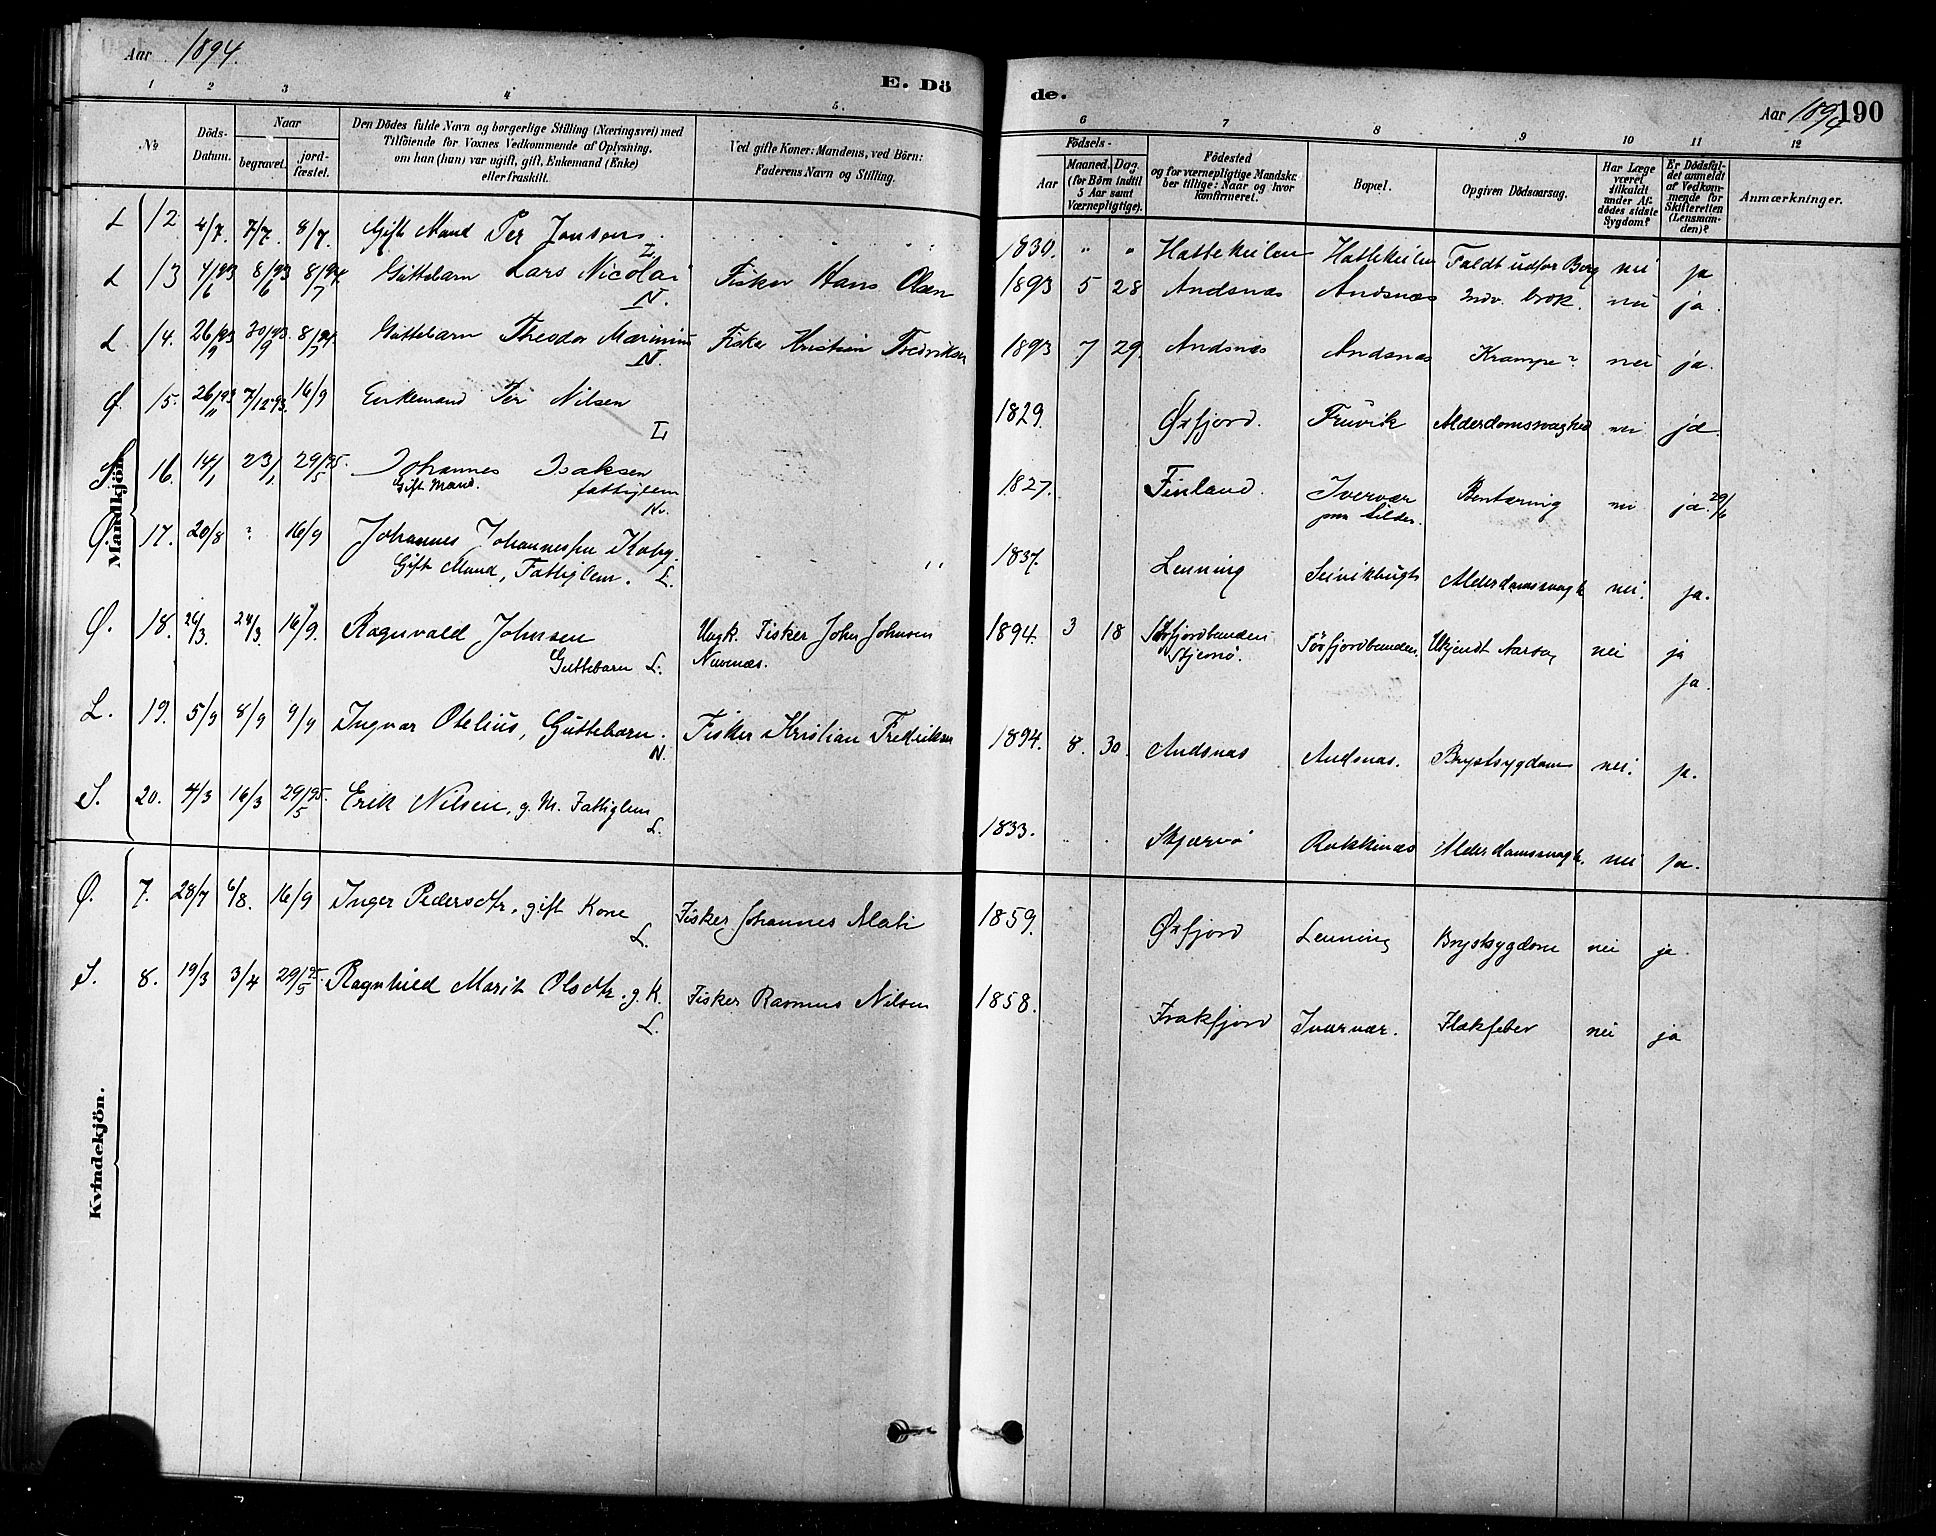 Aar 1894.
E. Dö
de.
Aar 1894
190
1 2 3 4 5.
6 7 8 9 10 11 12
No
Döds-Datum.
Naar
begravet.
jord-fæstet.
Den Dödes fulde Navn og borgerlige Stilling (Næringsvei) med
Tilföiende for Voxnes Vedkommende af Oplysning,
om han (hun) var ugift, gift, Enkemand (Enke)
eller fraskilt.
Ved gifte Koner: Mandens, ved Börn:
Faderens Navn og Stilling.
Födsels-
Aar
Maaned. Dag.
(for Börn indtil
5 Aar samt
Værnepligtige).
Födested
og for værnepligtige Mandska-
ber tillige: Naar og hvor
konfirmeret.
Bopæl.
Opgiven Dödsaarsag.
Har Læge
været
tilkaldt
under Af-
dödes sidste
Sygdom?
Er Dödsfal-
det anmeldt
af Vedkom-
mende for
Skifteretten
(Lensman-
den)?
Anmærkninger.
Mandkjön.
L 12. 4/7. 7/7. 8/7. Gift Mand Per Jonsen. L 1830. " " Hattekeilen Hattekeilen Faldt udfor Berg nei ja
L 13 4/6 93 8/6 93 8/7 94. Guttebarn Lars Nicolai N. Fisker Hans Olsen 1893 5 28 Andsnæs Andsnæs Indv. brok. nei ja.
L 14. 26/9 93 30/9 93. 8/7 94 Guttebarn Theodor Marinius N. Fisker Kristian Fredriksen 1893 7 29. Andsnæs Andsnæs Krampe? nei ja.
Ø. 15. 26/11 93 7/12 93. 16/9 Enkemand Per Nilsen L 1829. Øxfjord. Truvik Alderdomssvaghed nei ja.
S 16. 14/1 23/1. 29/5 95. Johannes Isaksen
Gift Mand. fattiglem
N. 1827. Finland. Ivervær nei ja. 29/6
Ø. 17. 20/8 ? 16/9 Johannes Johannesen
Gift Mand, Fattiglem. L. " 1837. Lenning Alderdomssvagh nei. ja.
Ø. 18. 3. 24/3 16/9. Ragnvald Johnsen
Guttebarn L. Ungk. Fisker John Johnsen
1894. 3 18 Sörfjordbunden
Stjernö. Sörfjordbunden. Ukjendt Aarsag nei ja
ja.
L. 19. 5/9 8/9 9/9 Ingvar Otelius, Guttebarn. N. Fisker Kristian Fredriksen 1894. 8. 30. Andsnæs Andsnæs. Brystsygdom nei. ja.
S. 20. 4/3 16/3 29/5 95. Erik Nilsen, g. M. Fattiglem L. 1833. Skjærvö Alderdomssvagh. nei ja.
Kvindekjön.
Ø. 7. 28/7 6/8. 16/9 Inger Pedersdtr, gift Kone L. Fisker Johannes Mati 1859. Øxfjord Lenning Brystsygdom nei ja.
S. 8. 19/3 3/4 29/5 95. Ragnhild Marit Olsdtr. g. K. L. Fisker Rasmus Nilsen 1858. Frakfjord Iverwær. Flækfeber nei ja